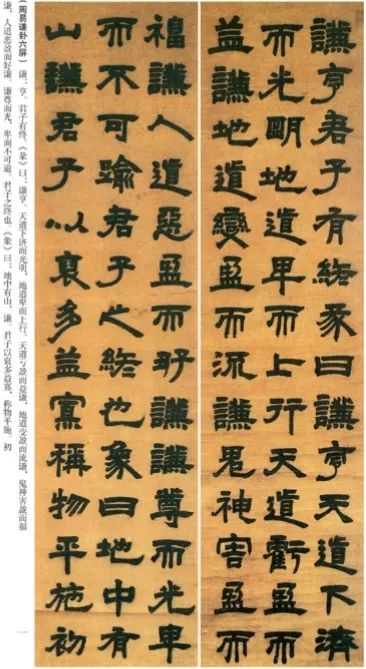 謙亨君子有終彖曰謙亨天道下濟
而光明地道卑而上行天道虧盈而
益謙地道變盈而流謙鬼神害盈而
福謙人道惡盈而好謙謙尊而光卑
而不可踰君子之終也象曰地中有
山謙君子以裒多益寡稱物平施初
(周易谦卦六屏) 谦,亨。君子有终。《彖》曰:谦亨。天道下济而光明,地道卑而上行。天道亏盈而益谦,地道变盈而流谦,鬼神害盈而福
谦,人道恶盈而好谦。谦尊而光,卑而不可逾。君子之终也。《象》曰:地中有山,谦。君子以裒多益寡,称物平施。初
一